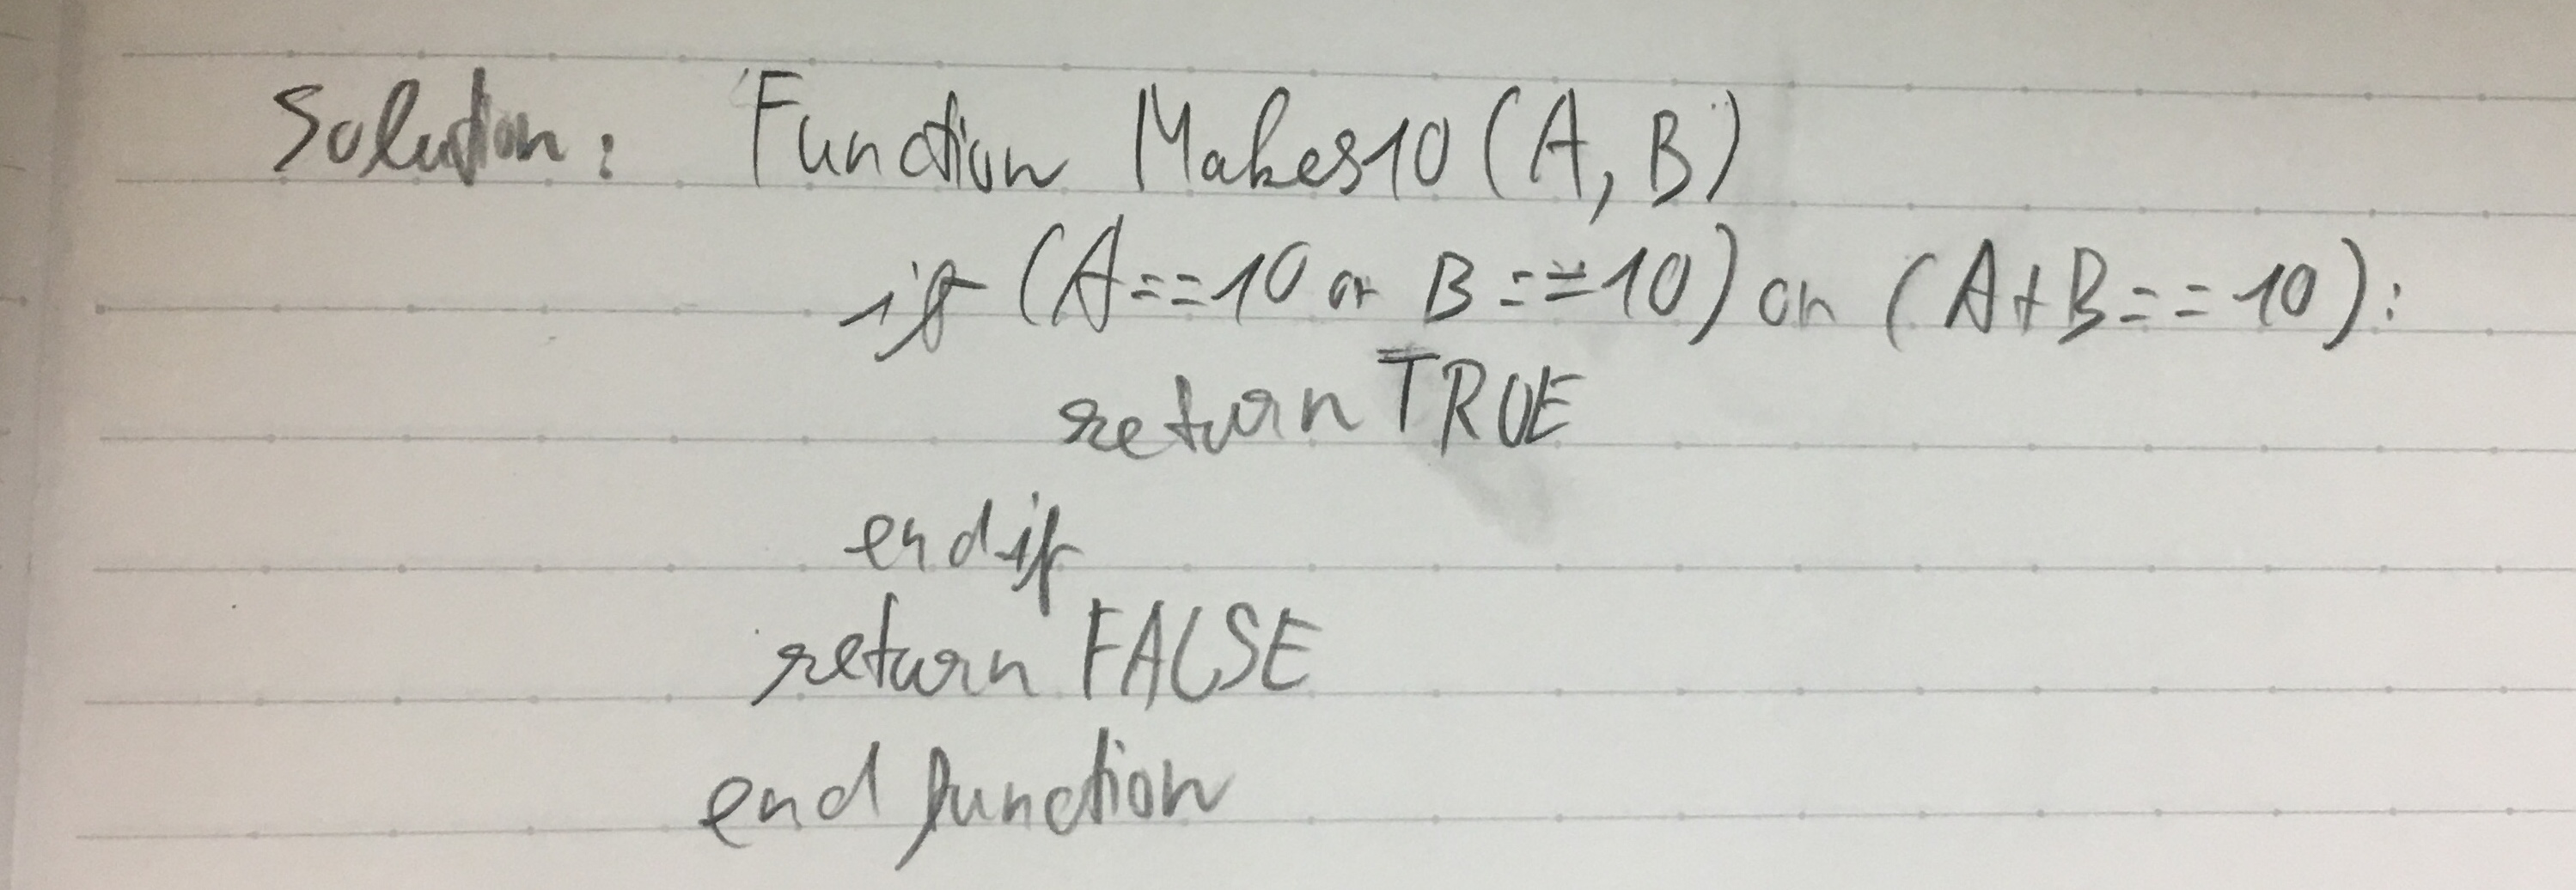 Solution: Function Makes10 (A, B)
if (A==10 or B==10) or (A+B==10):
return TRUE
endif
return FALSE
end function